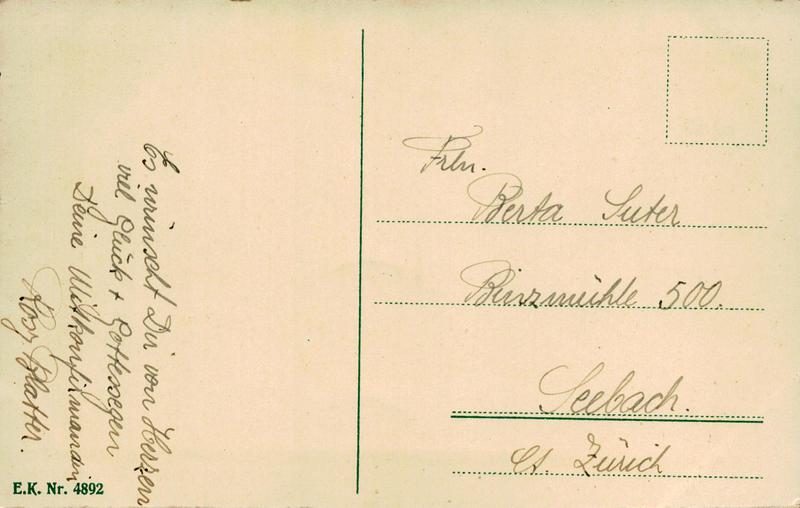 Es wünscht Dir von Herzen
viel Glück + Gottessegen
Deine Mitkonfirmandin
Rosy Blatter.
E.K. Nr. 4892
Frln.
Berta Suter
Binzmühle 500.
Seebach.
Ct. Zürich